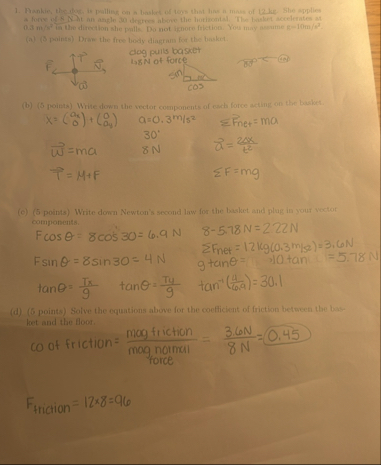 1. Frankie, the dog, is pulling on a basket of toys that has a mass of 12 kg. She applies
a force of 8 N at an angle 30 degrees above the horizontal. The basket accelerates at
0.3 m/s² in the direction she pulls. Do not ignore friction. You may assume g=10m/s²
(a) (5 points) Draw the free body diagram for the basket.
dog pulls basket
8 N of force
F
N
w
sin
30°
cos
(b) (5 points) Write down the vector components of each force acting on the basket.
a=0.3m/s²
ΣFnet=ma
30°
w=ma
8N
T=M+F
ΣF=mg
(c) (5 points) Write down Newton's second law for the basket and plug in your vector
components.
Fcosθ = 8cos30=6.9 N
8-5.78N=2.22N
ΣFnet=12kg(0.3m/s²)=3.6N
Fsinθ=8sin30=4N
gtanθ=
=5.78N
tanθ=Tx/g
tanθ=Ty/g
=30.1
(d) (5 points) Solve the equations above for the coefficient of friction between the bas-
ket and the floor.
co of friction= mag friction/mag normal force = 3.6N/8N=0.45
Ffriction=12×8=96